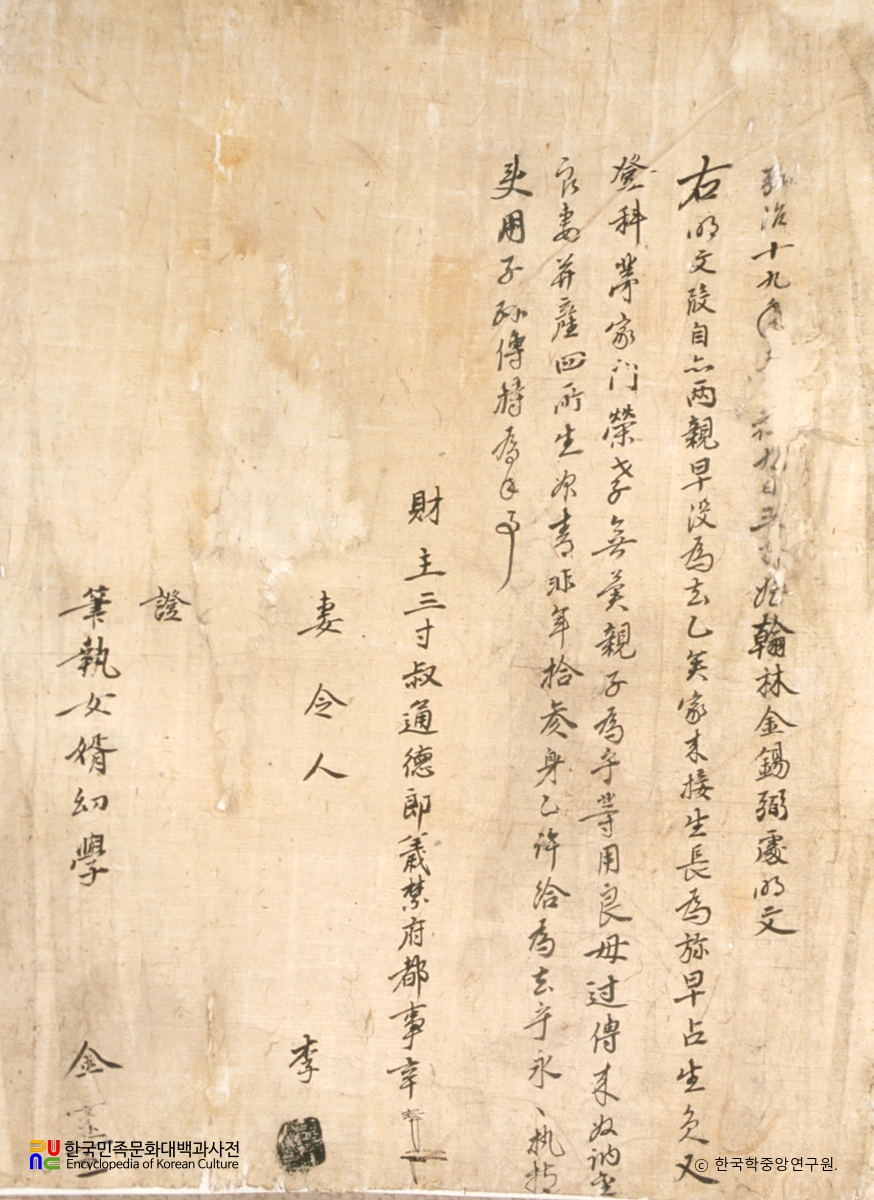 弘治十九年 六月 九日 姪翰林金錫弼處明文
右明文段自亦兩親早没為去乙矣家来接生長為旀早占生員又
登科第家門榮孝無矣親子為乎等用良母邊傳来奴訥
良妻并産四所生奴青非年拾参身乙許給為去乎永〻執持
使用子孫傳持為乎事
財主三寸叔通德郎義禁府都事辛
妻令人 李
證
筆執女婿幼學 金
한국민족문화대백과사전
Encyclopedia of Korean Culture
© 한국학중앙연구원.